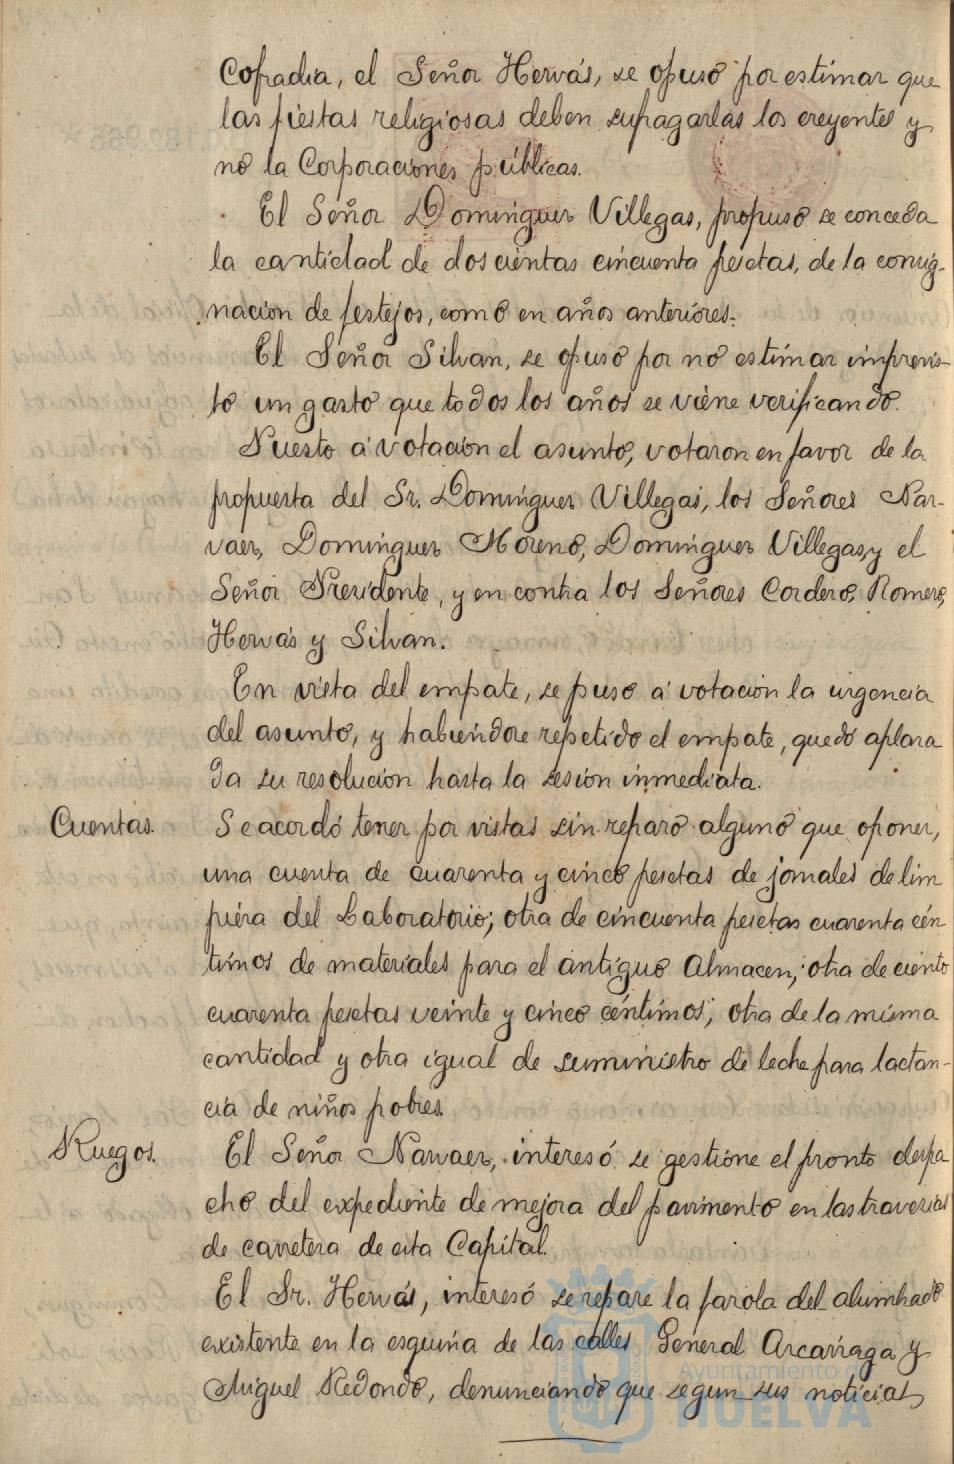 Cofradia, el Señor Hervás, se opuso por estimar que
las fiestas religiosas deben sufragarlas los creyentes y
no la Corporaciones públicas.
El Señor Dominguez Villegas, propuso se conceda
la cantidad de doscientas cincuenta pesetas, de la consig-
nacion de festejos, como en años anteriores.
El Señor Silvan, se opuso por no estimar imprevis-
to un gasto que todos los años se viene verificando.
Puesto á votacion el asunto, votaron en favor de la
propuesta del Sr. Dominguez Villegas, los Señores Nar-
vaez, Dominguez Moreno, Dominguez Villegas, y el
Señor Presidente, y en contra los Señores Cordero, Romero,
Hervás y Silvan.
En vista del empate, se puso á votacion la urgencia
del asunto, y habiendose repetido el empate, quedó aplaza
da su resolucion hasta la sesion inmediata.
Cuentas. Se acordó tener por vistas sin reparo alguno que oponer,
una cuenta de cuarenta y cinco pesetas de jornales de lim
pieza del Laboratorio; otra de cincuenta pesetas cuarenta cén
timos de materiales para el antiguo Almacen; otra de ciento
cuarenta pesetas veinte y cinco céntimos; otra de la misma
cantidad y otra igual de suministro de leche para lactan-
cia de niños pobres.
Ruegos. El Señor Narvaez, interesó se gestione el pronto despa
cho del expediente de mejora del pavimento en las travesias
de carretera de esta Capital.
El Sr. Hervás, interesó se repare la farola del alumbrado
existente en la esquina de las calles General Azcarraga y
Miguel Redondo, denunciando que segun sus noticias,
Ayuntamiento de
HUELVA